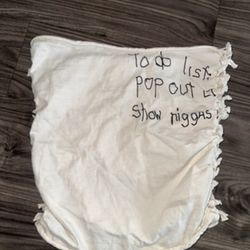 To do list:
pop out &
show niggas